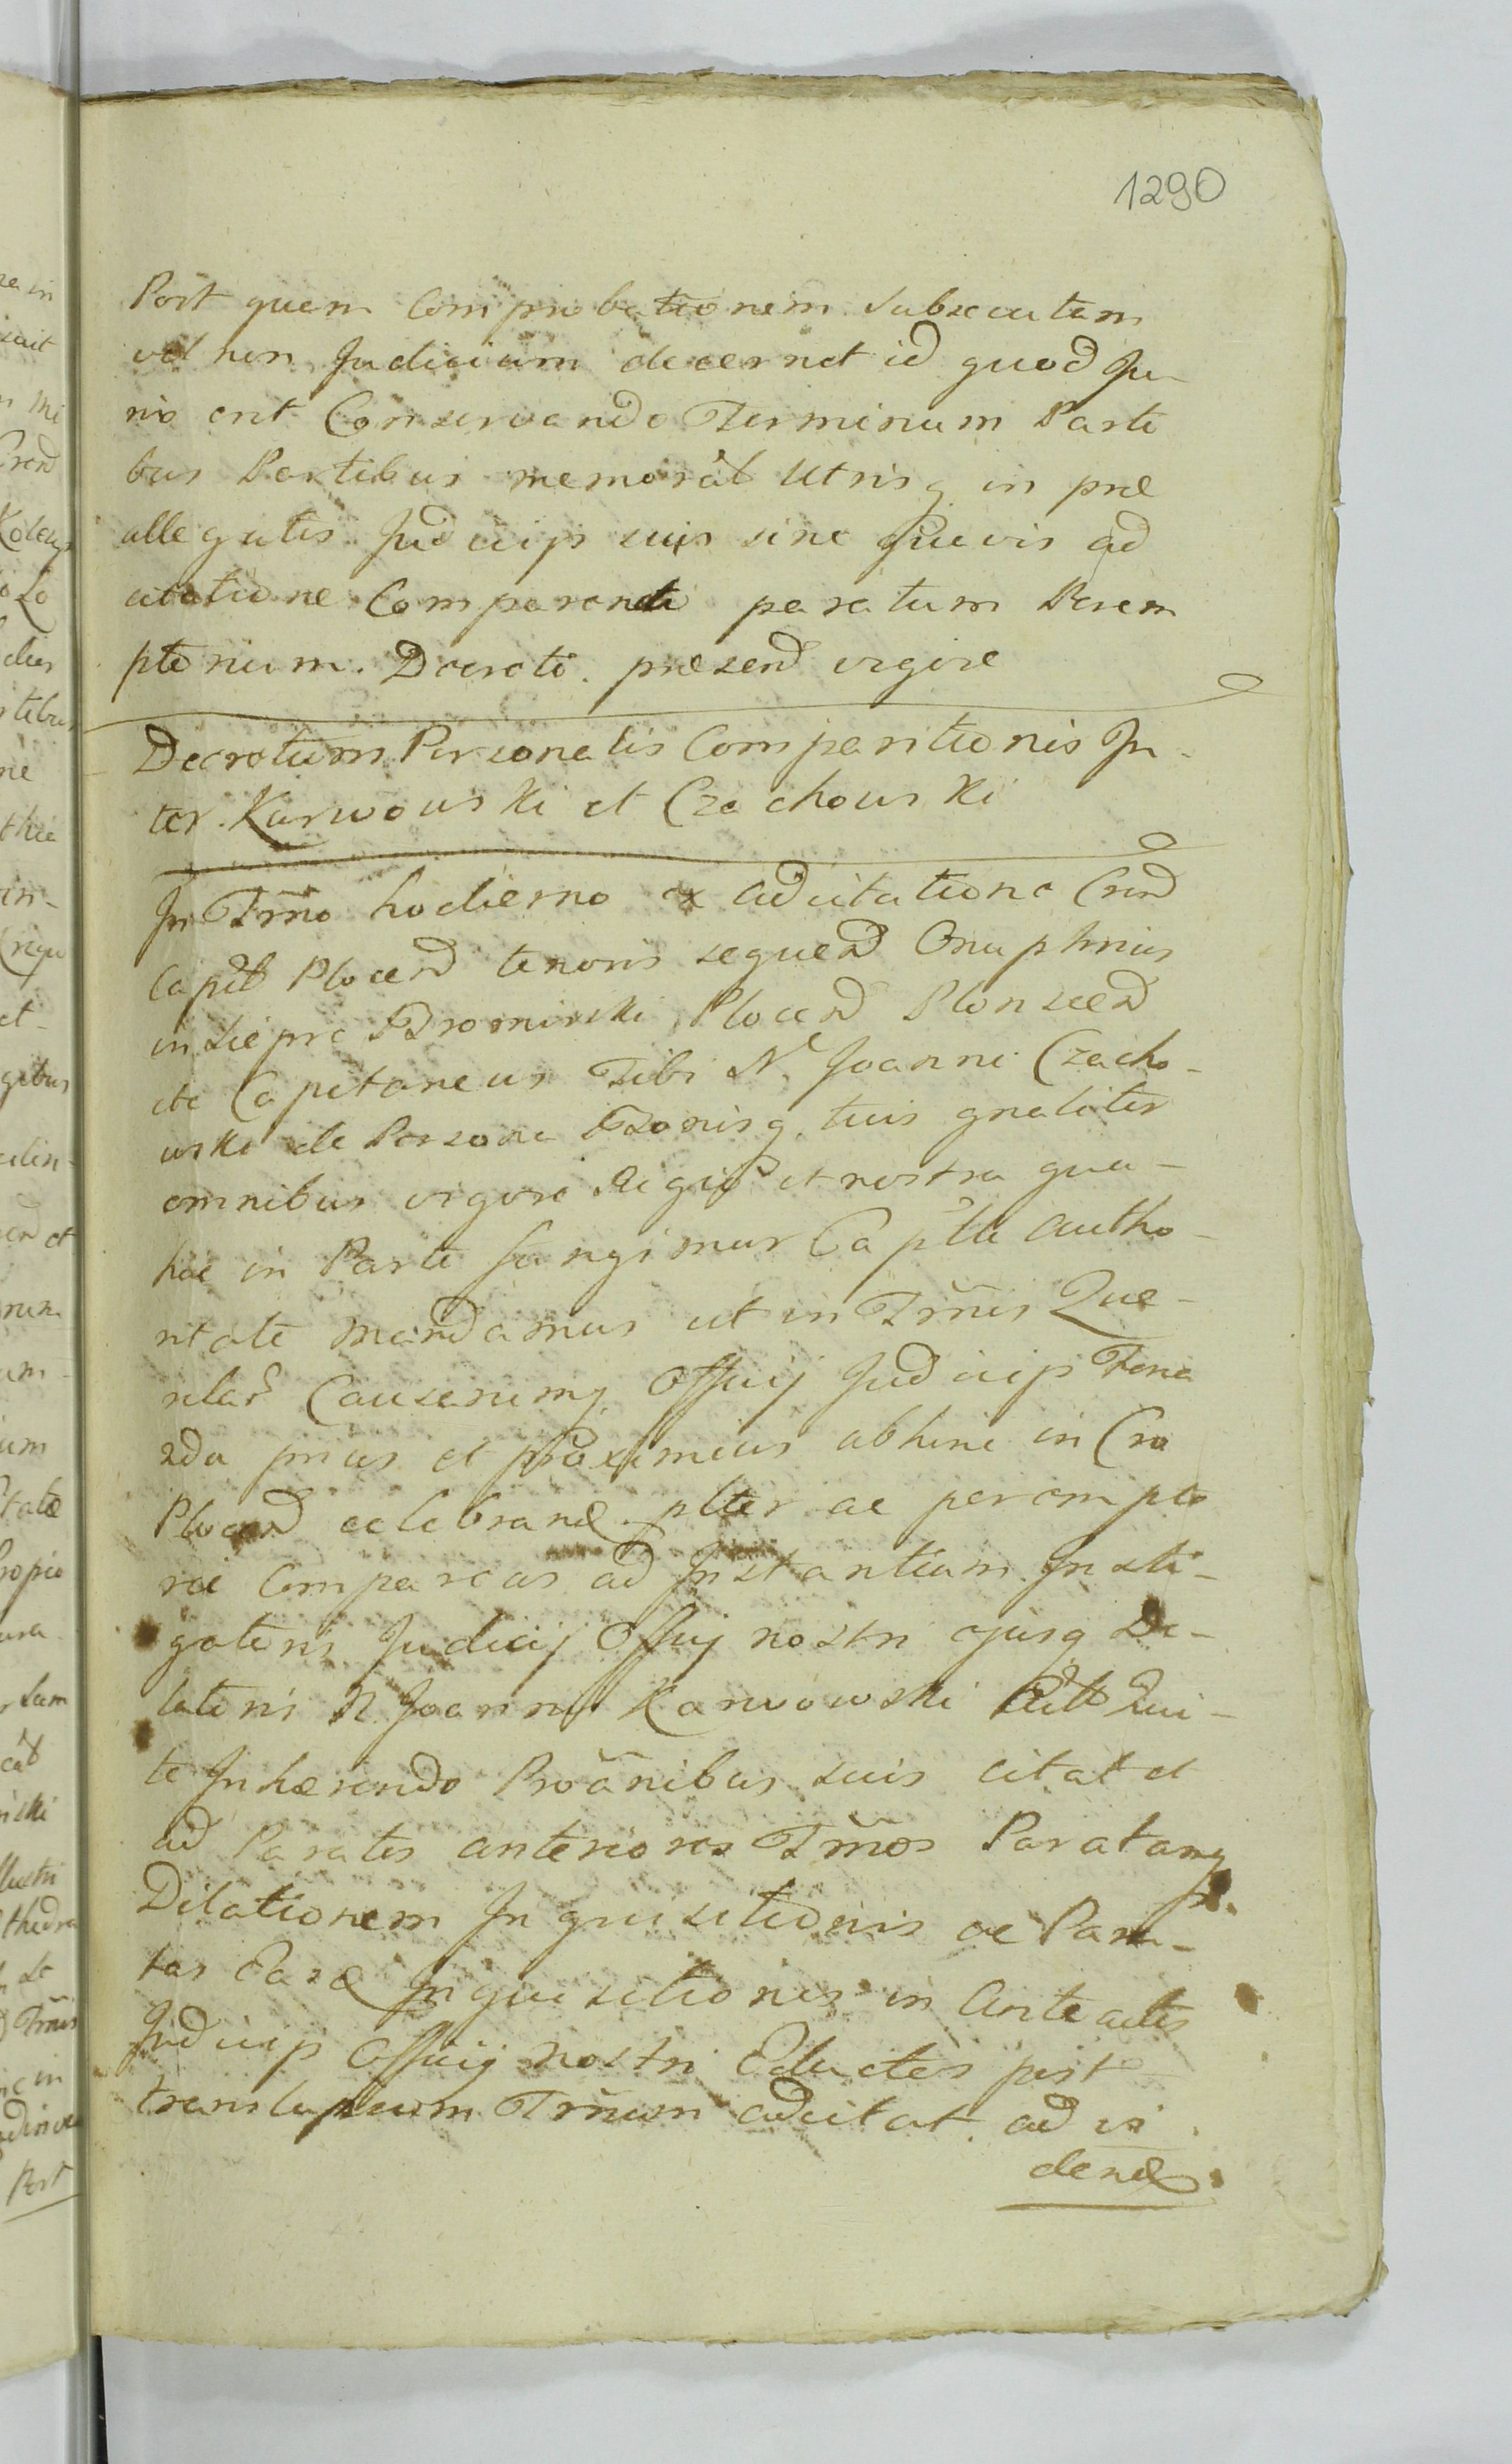 1290
Post quem Comprobationem Subsecutam
vel non Judicium decernet id quod Ju-
ris erit Conservando Terminum Parti
bus Partibus memorat Utrisq in præ
allegatis Judicijs suis sine quavis ad
citatione Comparendi paratum Perem
ptorium. Decreti præsend vigore
Decretum Personalis Comparitionis In-
ter Karwowski et Czachowski
In Trñno hodierno ex adcitatione Crend
Capit Plocend tenoris sequend Onuphrius
in Siepre Bromirski Plocend Plonscend
etc Capitaneus Tibi N. Joanni Czacho-
wski de Persona Bonisq tuis gnaliter
omnibus vigore Regia et nostra qua-
hac in Parte fungimur Capitli autho-
ritate mandamus ut in Trñnis Que-
relar Causarumq Offcij Judicijs Feria
2da prius et proximius abhinc in Cro
Plocend celebrand plter ac perempto
rie Compareas ad Instantiam Insti-
gatoris Judicij Offcij nostri ejusq De-
latoris N. Joannis Karwowski Qui-
te Inhærendo Proãnibus suis citat et
ad Paratos anteriores Trñnos Paratamq
Dilationem Inquisitionis ac Para-
tas Easd Inquisitiones in Anteactis
Judicijs Offcij nostri Eductas post
translapsum Trñnum adcitat ad vi
dend